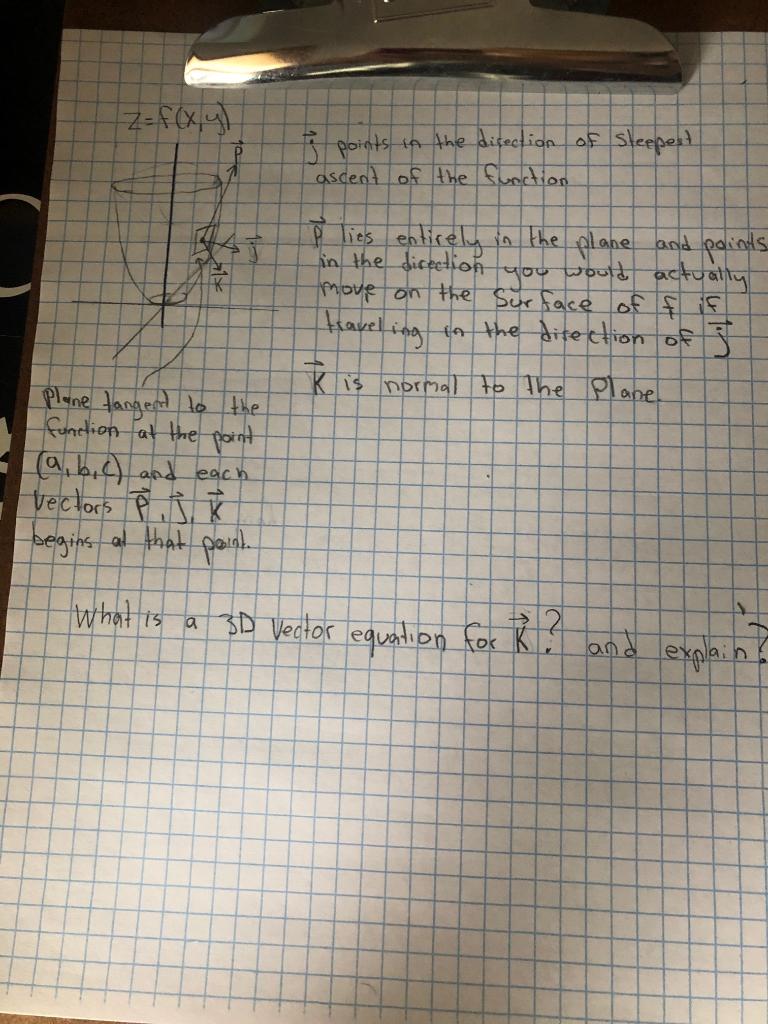 z=f(x,y)
P⃗
j⃗
K⃗
j⃗ points in the direction of Steepest
ascent of the function
P⃗ lies entirely in the plane and points
in the direction you would actually
move on the Surface of f if
traveling in the direction of j⃗
K⃗ is normal to the Plane.
Plane tangent to the
function at the point
(a,b,c) and each
vectors P⃗, j⃗, K⃗
begins at that point.
What is a 3D vector equation for K⃗? and explain?